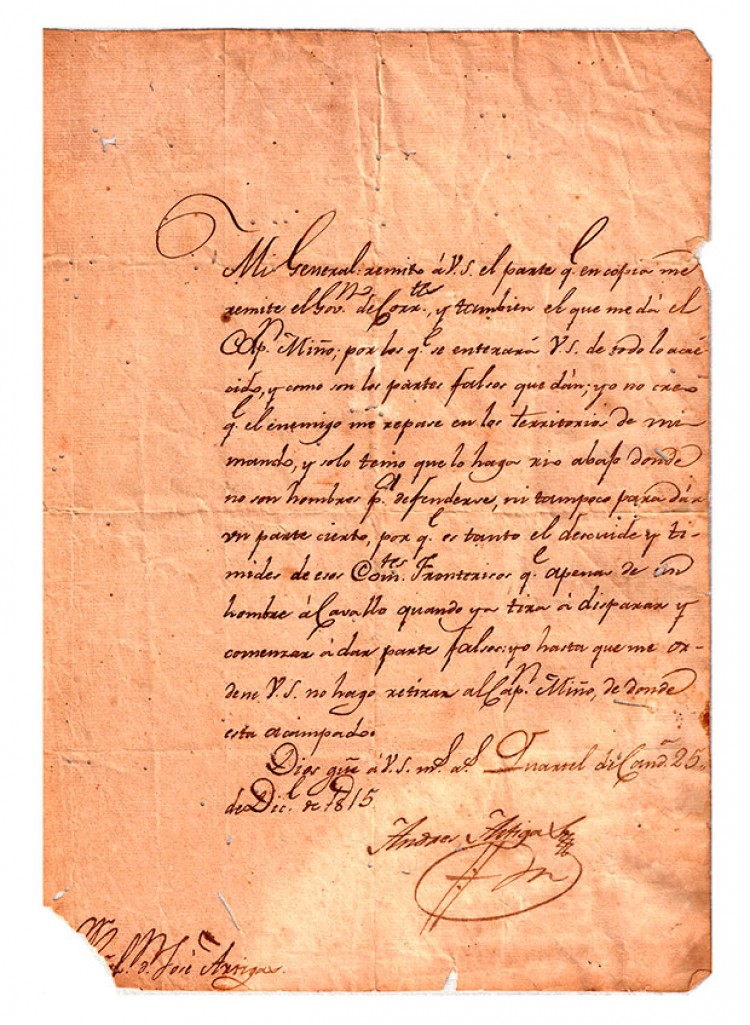 Mi General: remito á V.S. el parte q.e en copia me
remite el Gov.or de Corr.tes, y tambien el que me dá el
Cap.n Miño; por los q.e se enterará V.S. de todo lo acae-
cido, y como son los partes falsos que dán; yo no creo
q.e el enemigo me repase en los territorios de mi
mando, y solo temo que lo haga rio abajo donde
no son hombres p.a defenderse, ni tampoco para dár
un parte cierto, por q.e es tanto el descuido y ti-
mides de esos Com.tes Fronterisos q.e apenas de un
hombre á Cavallo quando ya tira á disparar y
comenzar á dar parte falsos: yo hasta que me or-
dene V.S. no hago retirar al Cap.n Miño, de donde
esta acampado.
Dios gũe á V.S. m.s a.s Quartel de Cand.a 25
de Dic.e de 1815
Andres Artigas
D.n José Artigas.